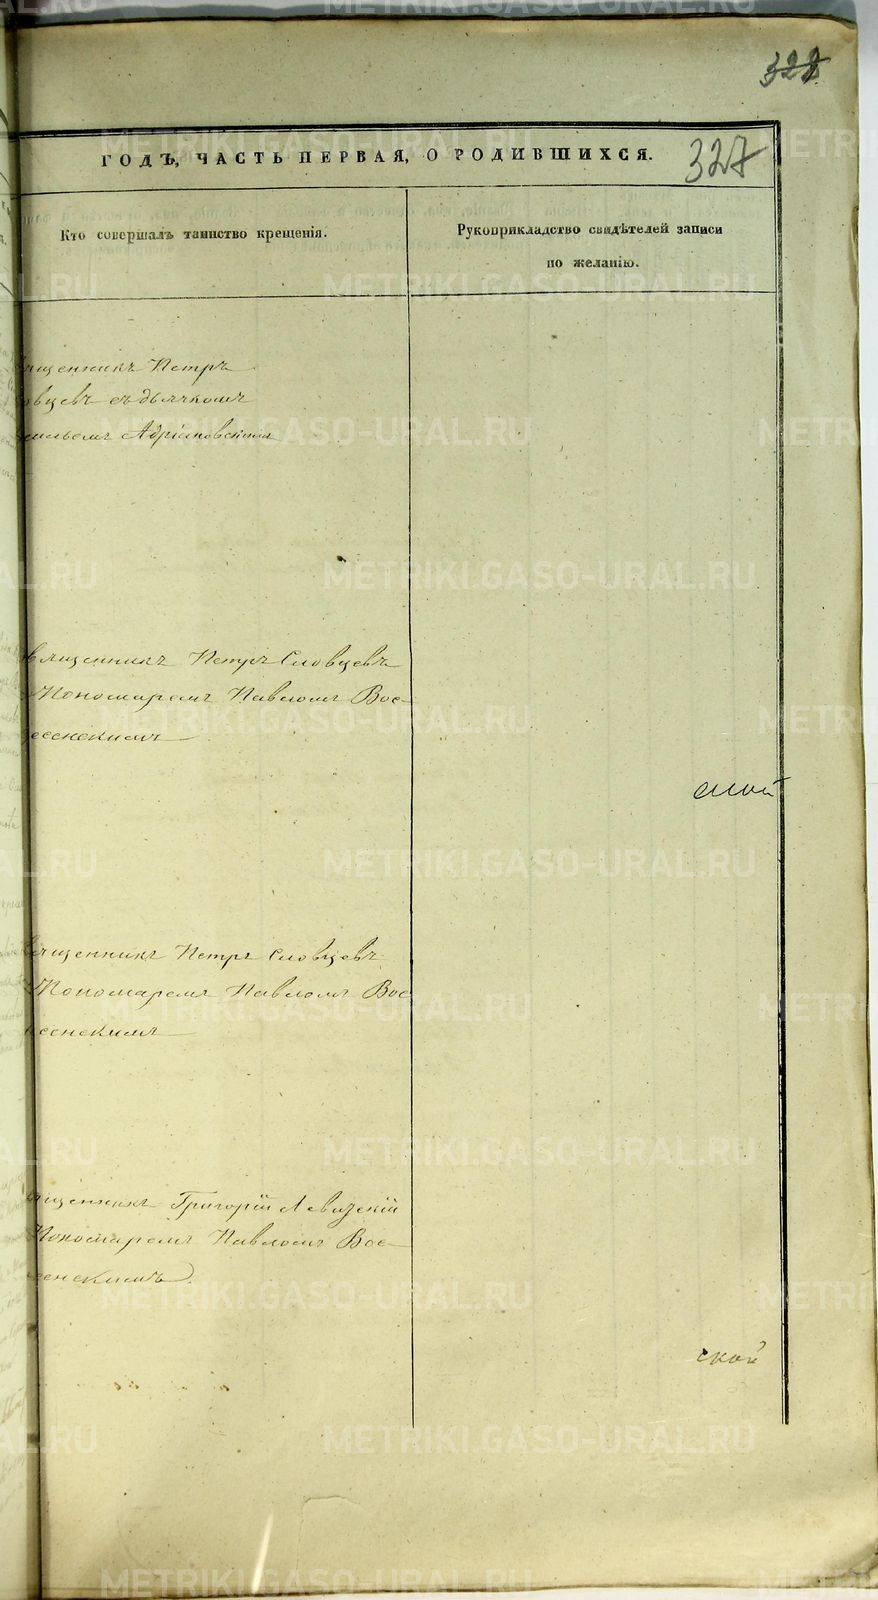 328
ГОДЪ, ЧАСТЬ ПЕРВАЯ, О РОДИВШИХСЯ. 327
Кто совершалъ таинство крещенія.
Рукоприкладство свидѣтелей записи
по желанію.
щенникъ Петръ
овцевъ съ дьячкомъ
Адріановскимъ
священникъ Петръ Словцевъ
Пономаремъ Павломъ Вос-
несенскимъ
священникъ Петръ Словцевъ
Пономаремъ Павломъ Вос
несенскимъ
щенникъ Григорій Левицкій
Пономаремъ Павломъ Вос-
сенскимъ
ской
METRIKI.GASO-URAL.RU